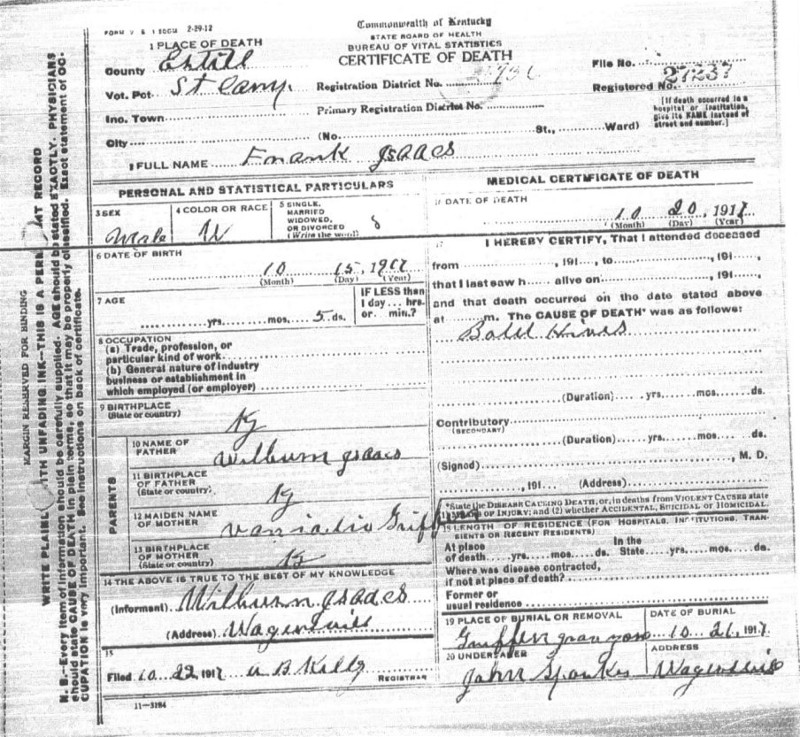 FORM V S 1 500M 2-29-12
Commonwealth of Kentucky
STATE BOARD OF HEALTH
BUREAU OF VITAL STATISTICS
CERTIFICATE OF DEATH
1 PLACE OF DEATH
County Estill
Vot. Pct.
Registration District No.
File No.
Registered No. 27237
Ino. Town
Primary Registration District No.
[If death occurred in a hospital or institution, give its NAME instead of street and number.]
City (No. St., Ward)
2 FULL NAME Frank Isaacs
PERSONAL AND STATISTICAL PARTICULARS
3 SEX Male
4 COLOR OR RACE W
5 SINGLE, MARRIED WIDOWED, OR DIVORCED (Write the word) S
6 DATE OF BIRTH 10 15, 1917
(Month) (Day) (Year)
7 AGE yrs. mos. 5 ds.
IF LESS than 1 day... hrs. or... min.?
8 OCCUPATION
(a) Trade, profession, or particular kind of work
(b) General nature of industry business or establishment in which employed (or employer)
9 BIRTHPLACE (State or country) Ky
PARENTS
10 NAME OF FATHER Wilburn Isaacs
11 BIRTHPLACE OF FATHER (State or country) Ky
12 MAIDEN NAME OF MOTHER
13 BIRTHPLACE OF MOTHER (State or country) Ky
14 THE ABOVE IS TRUE TO THE BEST OF MY KNOWLEDGE
(Informant) Wilburn Isaacs
(Address)
15
Filed 10 22, 1917 A B Kelly
REGISTRAR
11-3184
MEDICAL CERTIFICATE OF DEATH
DATE OF DEATH
10 20, 1917
(Month) (Day) (Year)
I HEREBY CERTIFY, That I attended deceased
from , 191 , to , 191 ,
that I last saw h alive on , 191 ,
and that death occurred on the date stated above
at m. The CAUSE OF DEATH* was as follows:
Bold Hives
(Duration) yrs. mos. ds.
Contributory
(SECONDARY)
(Duration) yrs. mos. ds.
(Signed) , M. D.
, 191 (Address)
*State the DISEASE CAUSING DEATH, or, in deaths from VIOLENT CAUSES state (1) MEANS OF INJURY; and (2) whether ACCIDENTAL, SUICIDAL or HOMICIDAL.
LENGTH OF RESIDENCE (FOR HOSPITALS, INSTITUTIONS, TRANSIENTS OR RECENT RESIDENTS)
At place of death yrs. mos. ds. In the State yrs. mos. ds.
Where was disease contracted, if not at place of death?
Former or usual residence
19 PLACE OF BURIAL OR REMOVAL
DATE OF BURIAL
10 21, 1917
20 UNDERTAKER
ADDRESS
John Sparks
MARGIN RESERVED FOR BINDING
WRITE PLAINLY WITH UNFADING INK—THIS IS A PERMANENT RECORD
N. B.—Every item of information should be carefully supplied. AGE should be stated EXACTLY. PHYSICIANS
should state CAUSE OF DEATH in plain terms, so that it may be properly classified. Exact statement of OC-
CUPATION is very important. See instructions on back of certificate.